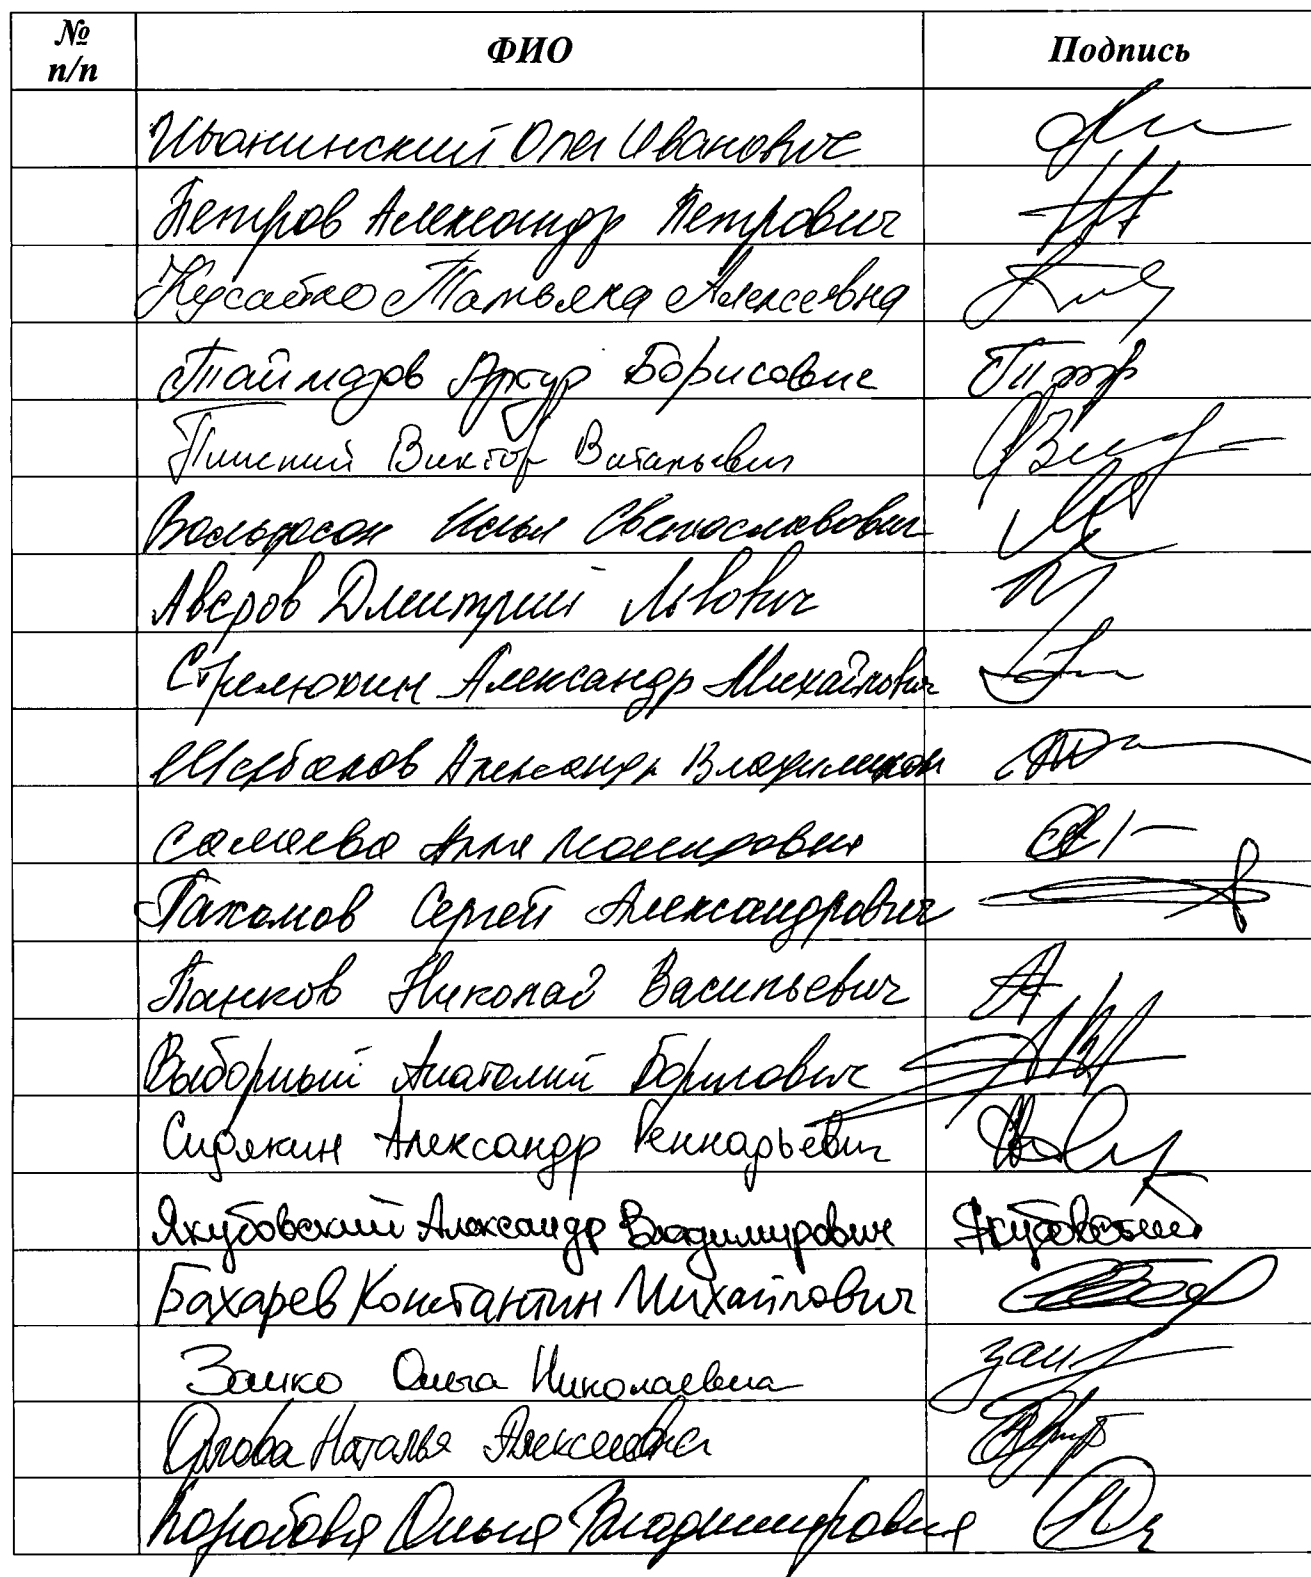 № п/п ФИО Подпись
Олег Иванович
Петров Александр Петрович
Кусайко Татьяна Алексеевна
Таймазов Артур Борисович
Пинский Виктор Витальевич
Вольфсон Илья Светославович
Аверов Дмитрий Львович
Стрелюхин Александр Михайлович
Щербаков Александр Владимиров
Самаева Анна Леонидовна
Пахомов Сергей Александрович
Панков Николай Васильевич
Выборный Анатолий Борисович
Сидякин Александр Геннадьевич
Якубовский Александр Владимирович Якубовский
Бахарев Константин Михайлович
Занко Ольга Николаевна
Орлова Наталья Алексеевна
Коробова Ольга Владимировна